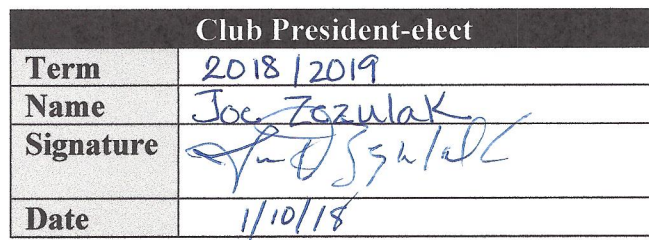 Club President-elect
Term 2018/2019
Name Joe Zozulak
Signature
Date 1/10/18